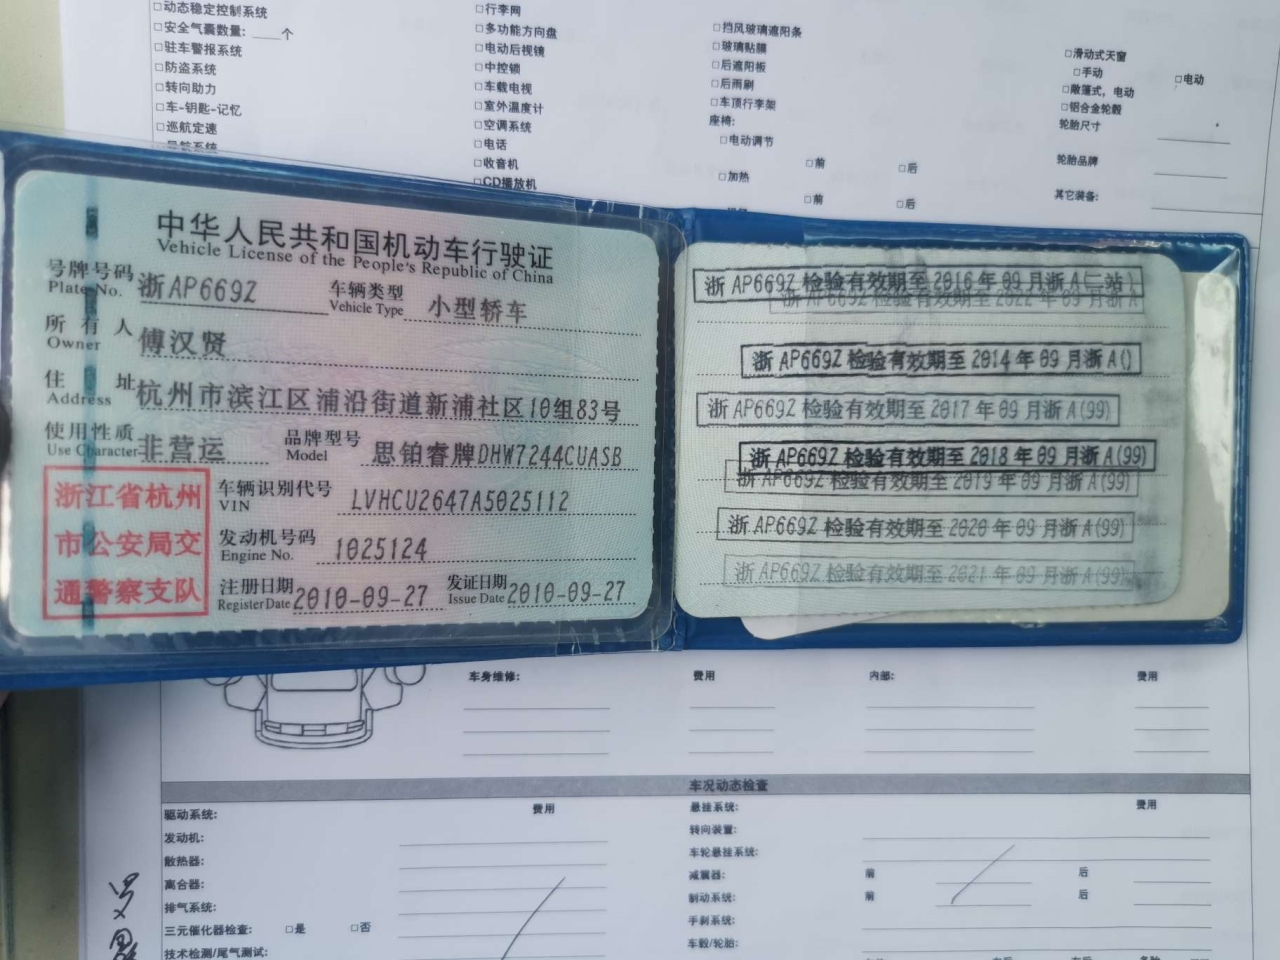 □动态稳定控制系统
□安全气囊数量：____个
□驻车警报系统
□防盗系统
□转向助力
□车-钥匙-记忆
□巡航定速
□导航系统
□行李网
□多功能方向盘
□电动后视镜
□中控锁
□车载电视
□室外温度计
□空调系统
□电话
□收音机
□CD播放机
□挡风玻璃遮阳条
□玻璃贴膜
□后遮阳板
□后雨刷
□车顶行李架
座椅：
□电动调节
□前 □后
□加热
□前 □后
□滑动式天窗
□手动 □电动
□敞篷式，电动
□铝合金轮毂
轮胎尺寸
轮胎品牌
其它装备：
中华人民共和国机动车行驶证
Vehicle License of the People's Republic of China
号牌号码 浙AP669Z 车辆类型 小型轿车
Plate No. Vehicle Type
所有人 傅汉贤
Owner
住址 杭州市滨江区浦沿街道新浦社区10组83号
Address
使用性质 非营运 品牌型号 思铂睿牌DHW7244CUASB
Use Character Model
浙江省杭州
市公安局交
通警察支队
车辆识别代号 LVHCU2647A5025112
VIN
发动机号码 1025124
Engine No.
注册日期 2010-09-27 发证日期 2010-09-27
Register Date Issue Date
浙AP669Z检验有效期至2016年09月浙A(二站)
浙AP669Z检验有效期至2022年09月浙A
浙AP669Z检验有效期至2014年09月浙A()
浙AP669Z检验有效期至2017年09月浙A(99)
浙AP669Z检验有效期至2018年09月浙A(99)
浙AP669Z检验有效期至2019年09月浙A(99)
浙AP669Z检验有效期至2020年09月浙A(99)
浙AP669Z检验有效期至2021年09月浙A(99)
车身维修： 费用 内部： 费用
车况动态检查
驱动系统： 费用
发动机：
散热器：
离合器：
排气系统：
三元催化器检查： □是 □否
技术检测/尾气测试：
悬挂系统： 费用
转向装置：
车轮悬挂系统：
减震器： 前 后
制动系统： 前 后
手刹系统：
车毂/轮胎：